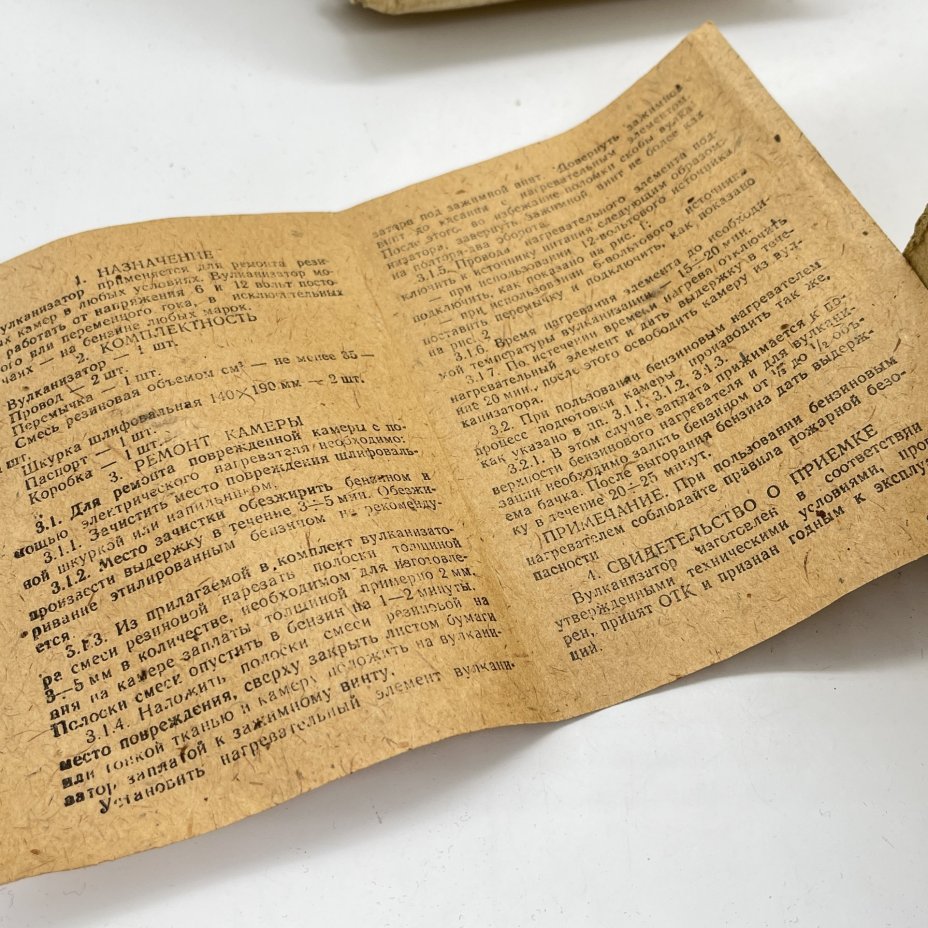 1. НАЗНАЧЕНИЕ
вулканизатор применяется для ремонта рези-
ых камер в любых условиях. Вулканизатор мо-
работать от напряжения 6 и 12 вольт посто-
ого или переменного тока, в исключительных
чаях — на бензине любых марок.
2. КОМПЛЕКТНОСТЬ
Вулканизатор — 1 шт.
Провод — 2 шт.
Перемычка — 1 шт.
Смесь резиновая объемом см³ — не менее 35 —
1 шт.
Шкурка шлифовальная 140×190 мм — 2 шт.
Паспорт — 1 шт.
Коробка — 1 шт.
3. РЕМОНТ КАМЕРЫ
3.1. Для ремонта поврежденной камеры с по-
мощью электрического нагревателя необходимо:
3.1.1. Зачистить место повреждения шлифоваль-
ной шкуркой или напильником.
3.1.2. Место зачистки обезжирить бензином и
произвести выдержку в течение 3—5 мин. Обезжи-
ривание этилированным бензином не рекоменду-
ется.
3.1.3. Из прилагаемой в комплект вулканизато-
ра смеси резиновой нарезать полоски толщиной
3—5 мм в количестве, необходимом для изготовле-
ния на камере заплаты толщиной примерно 2 мм.
Полоски смеси опустить в бензин на 1—2 минуты.
3.1.4. Наложить полоски смеси резиновой на
место повреждения, сверху закрыть листом бумаги
или тонкой тканью и камеру положить на вулкани-
затор заплатой к зажимному винту.
Установить нагревательный элемент вулкани-
затора под зажимной винт. Довернуть зажимной
винт до касания с нагревательным элементом.
После этого, во избежание поломки скобы вулка-
низатора, завернуть зажимной винт не более как
на полтора-два оборота.
3.1.5. Провода нагревательного элемента под-
ключить к источнику питания следующим образом:
— при использовании 12-вольтового источника
подключить, как показано на рис. 1.
— при использовании 6-вольтового источника
поставить перемычку и подключить, как показано
на рис. 2.
3.1.6. Время нагревания элемента до необходи-
мой температуры вулканизации 15—20 мин.
3.1.7. По истечении времени нагрева отключить
нагревательный элемент и дать выдержку в тече-
ние 20 мин., после этого освободить камеру из вул-
канизатора.
3.2. При пользовании бензиновым нагревателем
процесс подготовки камеры производить так же,
как указано в пп. 3.1.1, 3.1.2, 3.1.3.
3.2.1. В этом случае заплата прижимается к по-
верхности бензинового нагревателя и для вулкани-
зации необходимо залить бензином от 1/3 до 1/2 объ-
ема бачка. После выгорания бензина дать выдерж-
ку в течение 20—25 минут.
ПРИМЕЧАНИЕ. При пользовании бензиновым
нагревателем соблюдайте правила пожарной безо-
пасности
4. СВИДЕТЕЛЬСТВО О ПРИЕМКЕ
Вулканизатор изготовлен в соответствии
утвержденными техническими условиями, прове
рен, принят ОТК и признан годным к эксплу
ции.